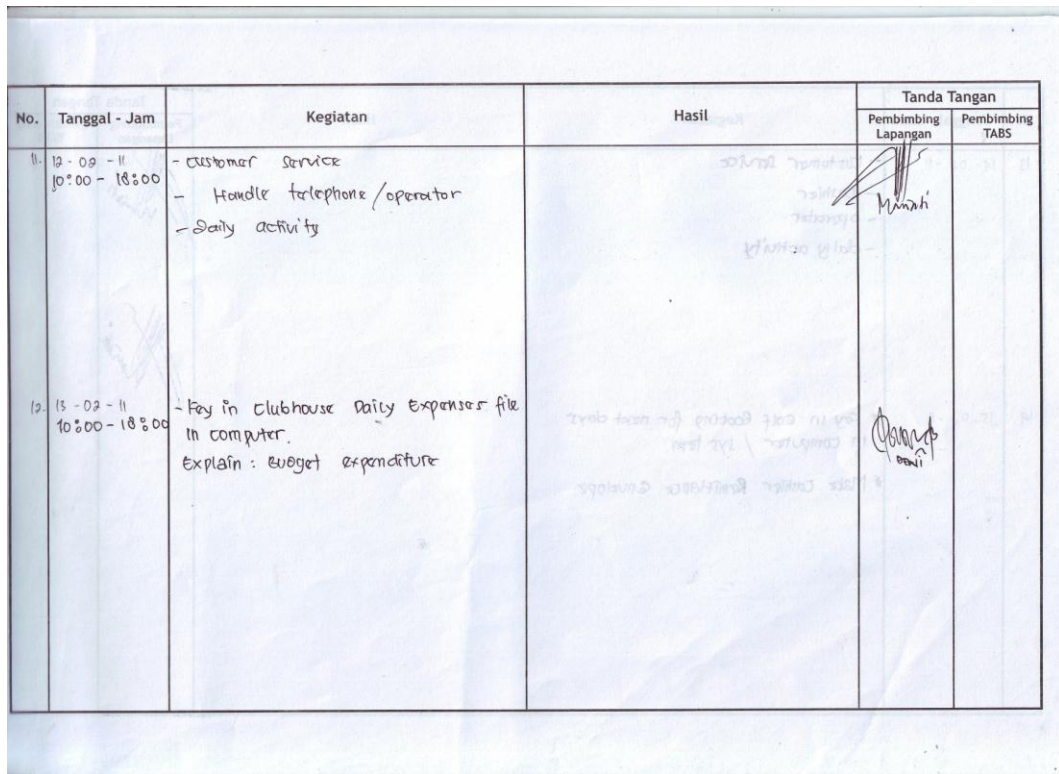 No. Tanggal - Jam Kegiatan Hasil Tanda Tangan
Pembimbing Lapangan Pembimbing TABS
11. 12-02-11 - Customer Service
10:00 - 18:00
- Handle telephone/operator
- Daily activity
Minati
12. 13-02-11 - Key in Clubhouse Daily Expenses file
10:00 - 18:00 in computer.
Explain : Budget expenditure
DENI